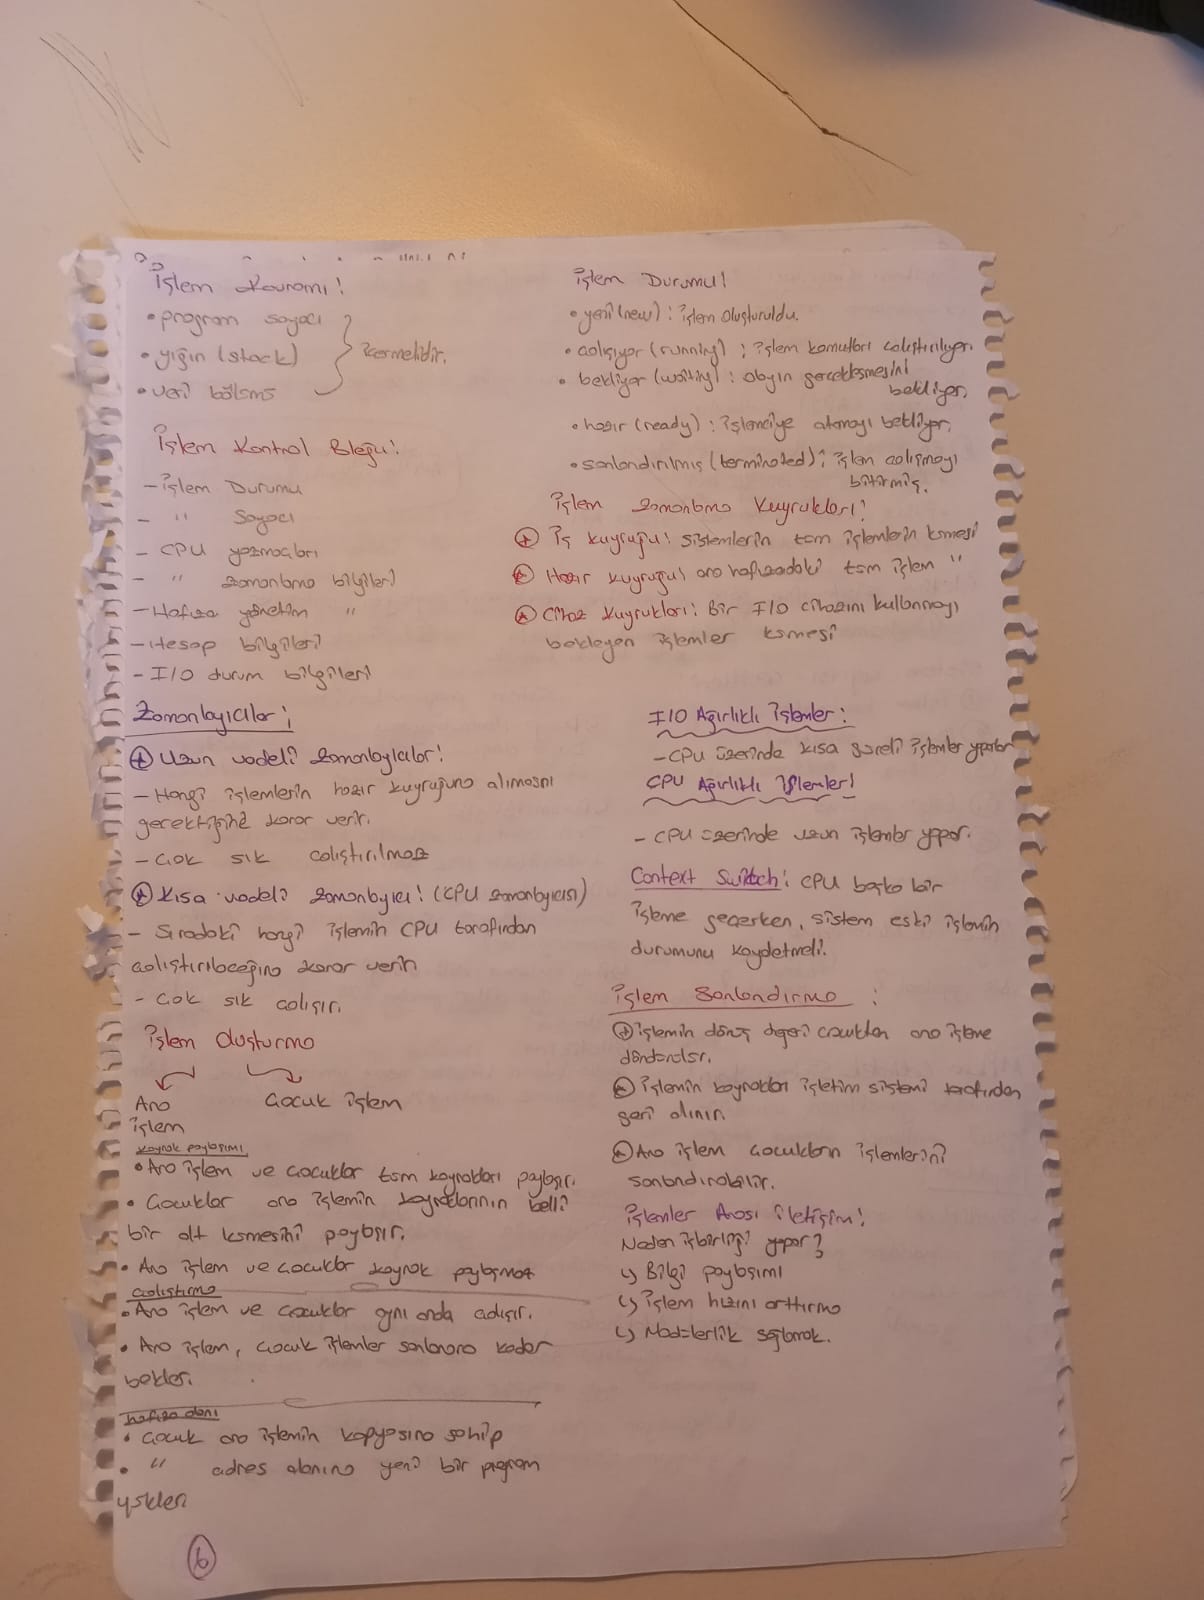 İşlem Kavramı!
• program sayacı
• yığın (stack)
• veri bölümü
içermelidir.
İşlem Kontrol Bloğu!
- İşlem Durumu
- " Sayacı
- CPU yazmaçları
- " zamanlama bilgileri
- Hafıza yönetim "
- Hesap bilgileri
- I/O durum bilgileri
Zamanlayıcılar:
+ Uzun vadeli zamanlayıcılar!
- Hangi işlemlerin hazır kuyruğuna alınması
gerektiğine karar verir.
- Çok sık çalıştırılmaz
+ Kısa vadeli zamanlayıcı! (CPU zamanlayıcısı)
- Sıradaki hangi işlemin CPU tarafından
çalıştırılacağına karar verir
- Çok sık çalışır.
İşlem Oluşturma
Ana
işlem
Çocuk işlem
kaynak paylaşımı
• Ana işlem ve çocuklar tüm kaynakları paylaşır.
• Çocuklar ana işlemin kaynaklarının belli
bir alt kümesini paylaşır.
• Ana işlem ve çocuklar kaynak paylaşmaz
çalıştırma
• Ana işlem ve çocuklar aynı anda çalışır.
• Ana işlem, çocuk işlemler sonlanana kadar
bekler.
hafıza alanı
• Çocuk ana işlemin kopyasına sahip
• " adres alanına yeni bir program
yükler.
6
İşlem Durumu!
• yeni (new) : işlem oluşturuldu.
• çalışıyor (running) : işlem komutları çalıştırılıyor.
• bekliyor (waiting) : olayın gerçekleşmesini
bekliyor.
• hazır (ready) : işlemciye atanmayı bekliyor.
• sonlandırılmış (terminated) : işlem çalışmayı
bitirmiş.
İşlem zamanlama kuyrukları!
+ İş kuyruğu! sistemlerin tüm işlemlerin kümesi
+ Hazır kuyruğu! ana hafızadaki tüm işlem "
+ Cihaz kuyrukları: Bir I/O cihazını kullanmayı
bekleyen işlemler kümesi
I/O Ağırlıklı işlemler:
- CPU üzerinde kısa süreli işlemler yapar
CPU Ağırlıklı işlemler!
- CPU üzerinde uzun işlemler yapar.
Context Switch: CPU başka bir
işleme geçerken, sistem eski işlemin
durumunu kaydetmeli.
İşlem Sonlandırma :
+ işlemin dönüş değeri çocuktan ana işleme
döndürülür.
+ işlemin kaynakları işletim sistemi tarafından
geri alınır.
+ Ana işlem çocukların işlemlerini
sonlandırabilir.
İşlemler Arası iletişim!
Neden işbirliği yapar?
↳ Bilgi paylaşımı
↳ işlem hızını arttırma
↳ Modülerlik sağlamak.